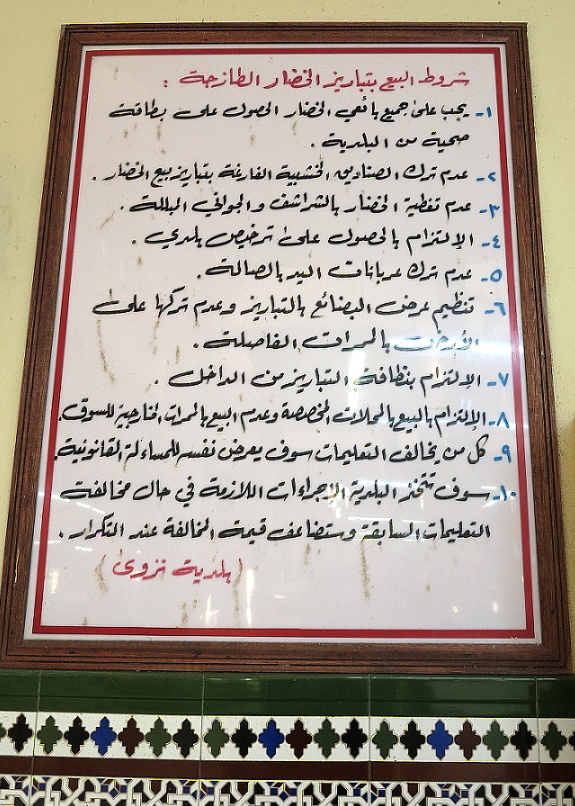 شروط البيع بتباريز الخضار الطازجة :
١- يجب على جميع بائعي الخضار الحصول على بطاقة
صحية من البلدية .
٢- عدم ترك الصناديق الخشبية الفارغة بتباريز بيع الخضار .
٣- عدم تغطية الخضار بالشراشف والجواني المبللة .
٤- الإلتزام بالحصول على ترخيص بلدي .
٥- عدم ترك عربانات اليد بالصالة .
٦- تنظيم عرض البضائع بالتباريز وعدم تركها على
الأرض بالممرات الفاصلة .
٧- الإلتزام بنظافة التباريز من الداخل .
٨- الإلتزام بالبيع بالمحلات المخصصة وعدم البيع بالممرات الخارجية للسوق .
٩- كل من يخالف التعليمات سوف يعرض نفسه للمساءلة القانونية .
١٠- سوف تتخذ البلدية الإجراءات اللازمة في حال مخالفة
التعليمات السابقة وستضاعف قيمة المخالفة عند التكرار .
( بلدية نزوى )